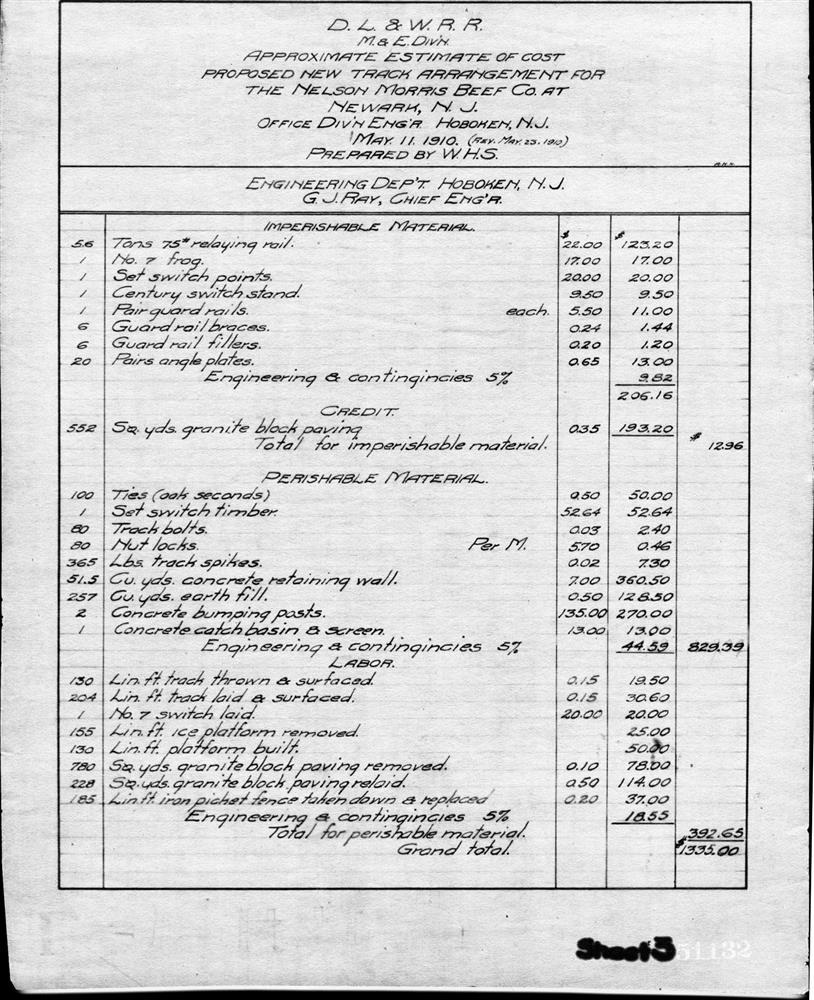 D. L. & W. R. R.
M. & E. DIV'N.
APPROXIMATE ESTIMATE OF COST
PROPOSED NEW TRACK ARRANGEMENT FOR
THE NELSON MORRIS BEEF CO. AT
NEWARK, N. J.
OFFICE DIV'N ENG'R. HOBOKEN, N.J.
MAY. 11. 1910. (REV. MAY. 23. 1910)
PREPARED BY W.H.S.
ENGINEERING DEP'T. HOBOKEN, N.J.
G. J. RAY, CHIEF ENG'R.
IMPERISHABLE MATERIAL.
5.6 Tons 75# relaying rail. $ 22.00 $ 123.20
1 No. 7 frog. 17.00 17.00
1 Set switch points. 20.00 20.00
1 Century switch stand. 9.50 9.50
1 Pair guard rails. each. 5.50 11.00
6 Guard rail braces. 0.24 1.44
6 Guard rail fillers. 0.20 1.20
20 Pairs angle plates. 0.65 13.00
Engineering & contingincies 5% 9.82
206.16
CREDIT.
552 Sq. yds. granite block paving 0.35 193.20
Total for imperishable material. $ 12.96
PERISHABLE MATERIAL.
100 Ties (oak seconds) 0.50 50.00
1 Set switch timber. 52.64 52.64
80 Track bolts. 0.03 2.40
80 Nut locks. Per M. 5.70 0.46
365 Lbs. track spikes. 0.02 7.30
51.5 Cu. yds. concrete retaining wall. 7.00 360.50
257 Cu. yds. earth fill. 0.50 128.50
2 Concrete bumping posts. 135.00 270.00
1 Concrete catch basin & screen. 13.00 13.00
Engineering & contingincies 5% 44.59 829.39
LABOR.
130 Lin. ft. track thrown & surfaced. 0.15 19.50
204 Lin. ft. track laid & surfaced. 0.15 30.60
1 No. 7 switch laid. 20.00 20.00
155 Lin. ft. ice platform removed. 25.00
130 Lin. ft. platform built. 50.00
780 Sq. yds. granite block paving removed. 0.10 78.00
228 Sq. yds. granite block paving relaid. 0.50 114.00
185 Lin. ft. iron picket fence taken down & replaced 0.20 37.00
Engineering & contingincies 5% 18.55
Total for perishable material. 392.65
Grand total. $1335.00
Sheet 5 51132